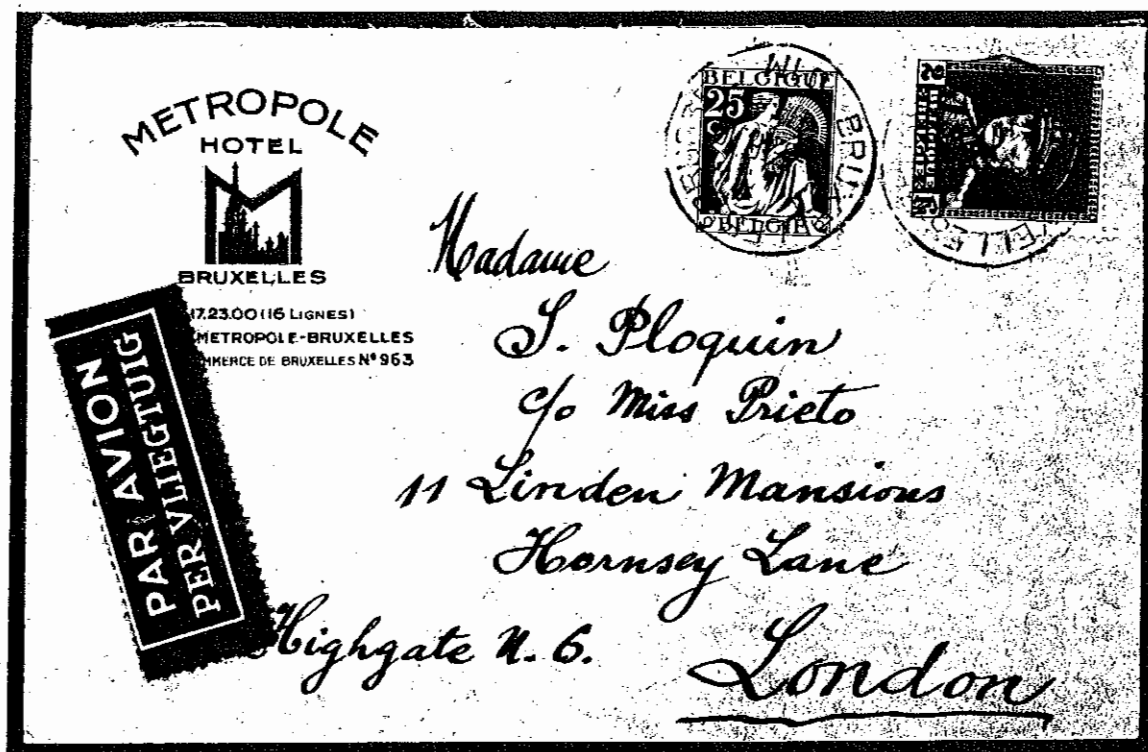 METROPOLE
HOTEL
BRUXELLES
17.23.00 (16 LIGNES)
METROPOLE-BRUXELLES
MMERCE DE BRUXELLES Nº 963
PAR AVION
PER VLIEGTUIG
BELGIQUE
25
c
BELGIË
BELGIQUE
Madame
S. Ploquin
c/o Miss Prieto
11 Linden Mansions
Hornsey Lane
Highgate N. 6.
London